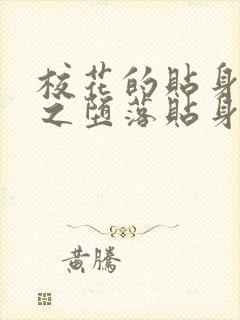 校花的貼身
之堕落貼身
黄騰